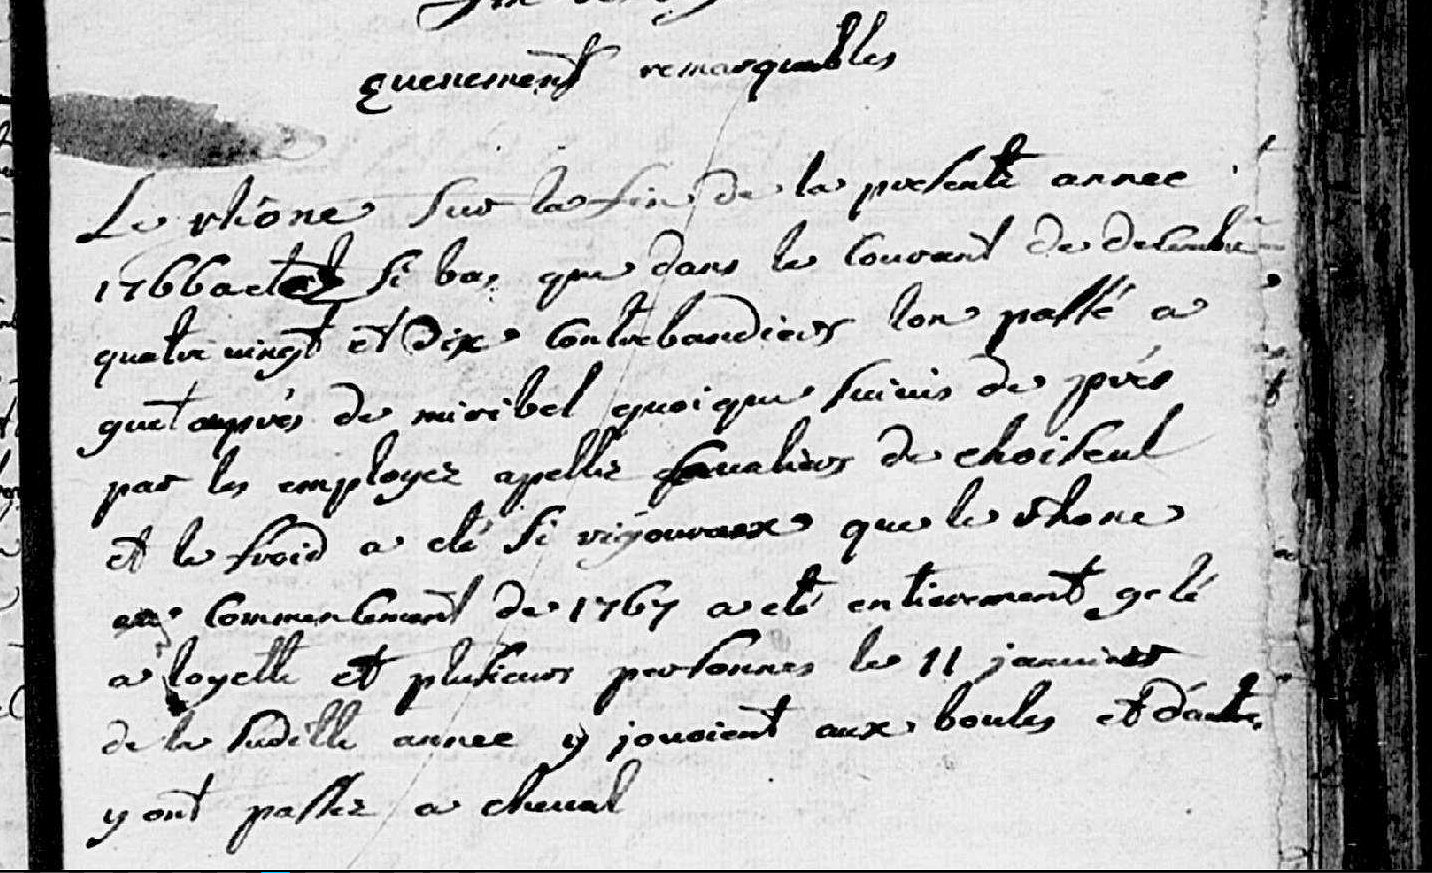 evenement remarquables
Le rhône sur la fin de la presente annee
1766 a eté si bas que dans le courant de decembre
quatre vingt et dix contrebandiers lon passé a
guet auprés de miribel quoique suivis de prés
par les employez apellez cavaliers de choiseul
et le froid a eté si rigoureux que le rhone
au commencement de 1767 a eté entierement gelé
a loyette et plusieurs personnes le 11 janvier
de la suditte annee y jouoient aux boules et d'autre
y ont passez a cheval